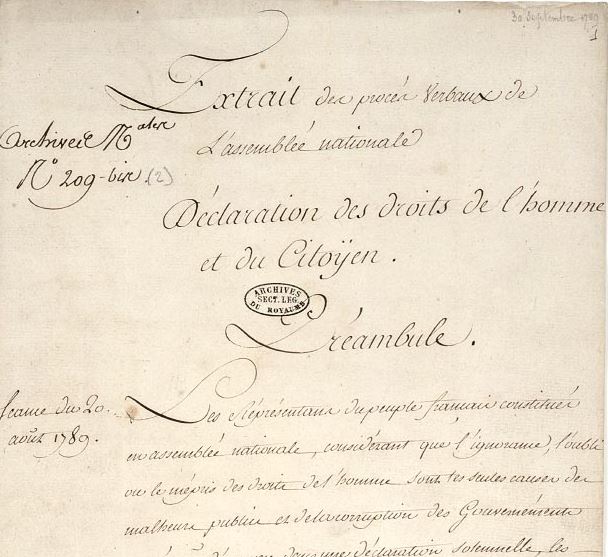 30 Septembre 1789
1
Extrait des procès Verbaux de
L'assemblée nationale
Archives N.ales
N.o 209-bis (2)
Déclaration des droits de l'homme
et du Citoÿen.
ARCHIVES
SECT. LEG.
DU ROYAUME
Préambule.
Seance du 20.
août 1789.
Les Représentans du peuple francais constitués
en assemblée nationale, considérant que l'ignorance, l'oubli
ou le mépris des droits de l'homme sont les seules causes des
malheurs publics et de la corruption des Gouvernéments
dans une déclaration solemnelle, les